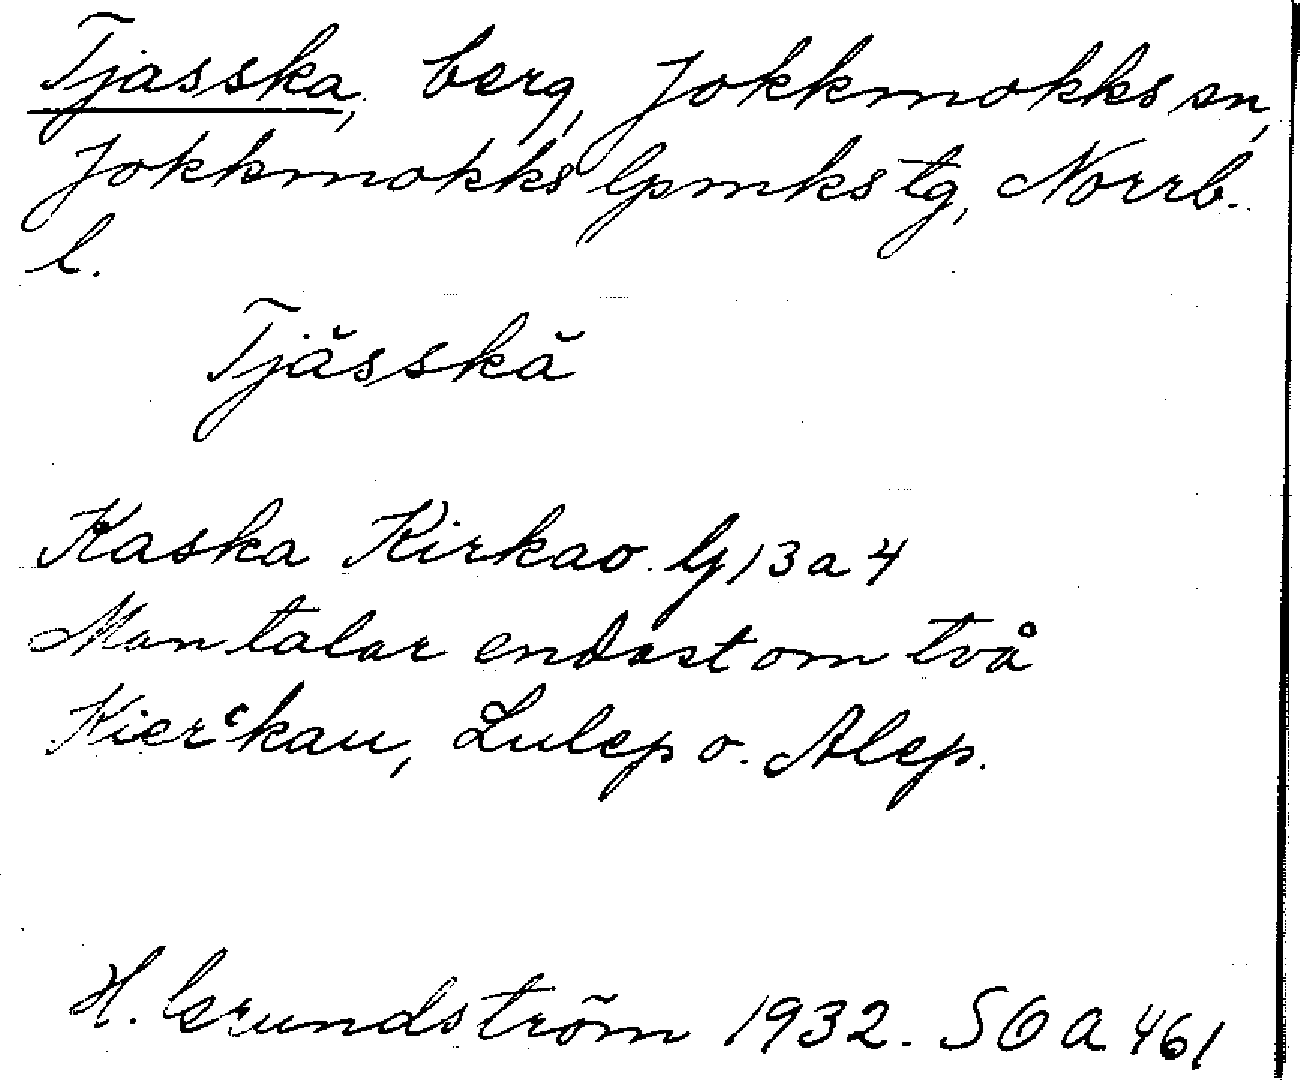 Tjasska, berg, Jokkmokks sn,
Jokkmokks lpmks tg, Norrb.
l.
Tjăsskă
Kaska Kirkao. G 13 a 4
Man talar endast om två
Kierʿkau, Lulep o. Alep.
H. Grundström 1932. SOA 461